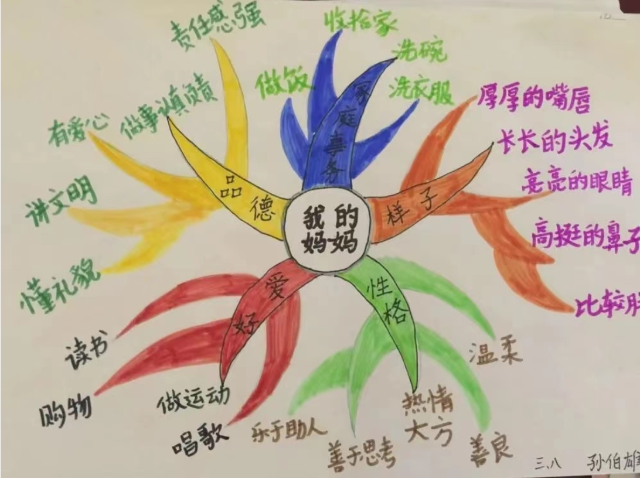 我的
妈妈
品德
责任感强
做事认真负责
有爱心
讲文明
懂礼貌
家庭事务
做饭
收拾家
洗碗
洗衣服
样子
厚厚的嘴唇
长长的头发
亮亮的眼睛
高挺的鼻子
比较胖
性格
温柔
善良
热情
大方
善于思考
乐于助人
爱好
唱歌
做运动
购物
读书
三.八
孙伯雄